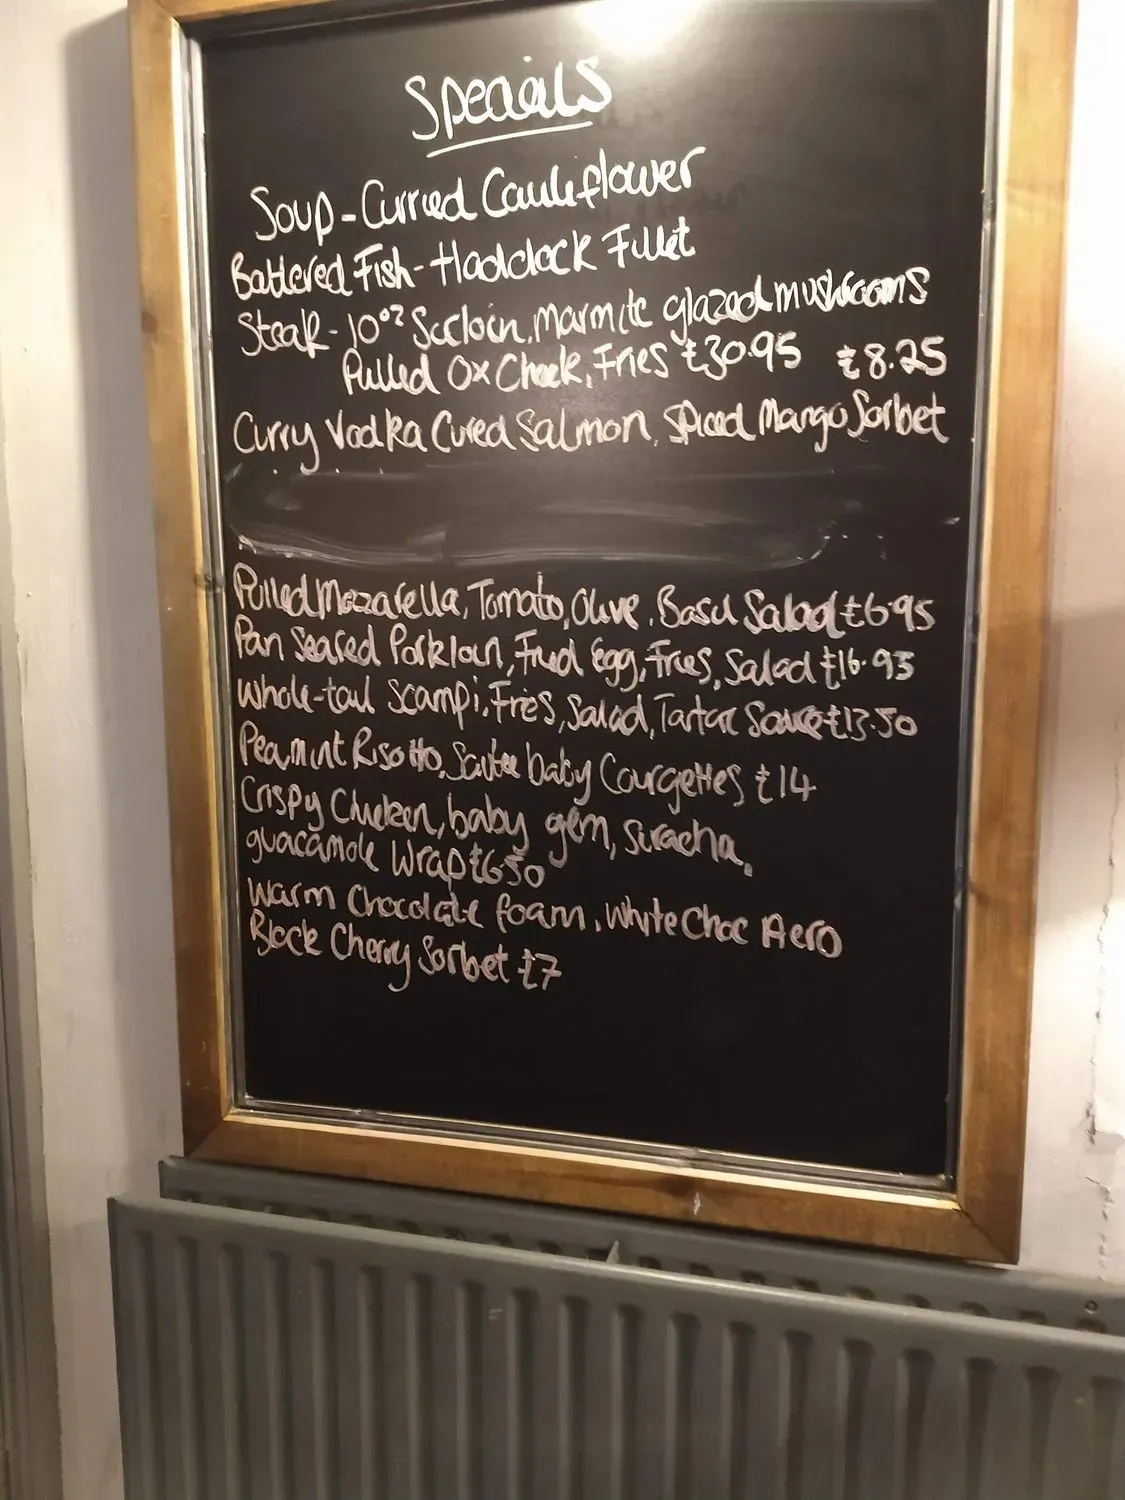 Specials
Soup - Curried Cauliflower
Battered Fish - Haddock Fillet
Steak - 10oz Sirloin, Marmite glazed mushrooms
Pulled Ox Cheek, Fries £30.95 £8.25
Curry Vodka Cured Salmon, Spiced Mango Sorbet
Pulled Mozarella, Tomato, Olive, Basil Salad £6.95
Pan Seared Pork loin, Fried Egg, Fries, Salad £16.95
Whole-tail Scampi, Fries, Salad, Tartar Sauce £13.50
Pea, mint Risotto, Sautee baby Courgettes £14
Crispy Chicken, baby gem, Siracha,
guacamole Wrap £6.50
Warm Chocolate foam, White Choc Aero
Black Cherry Sorbet £7